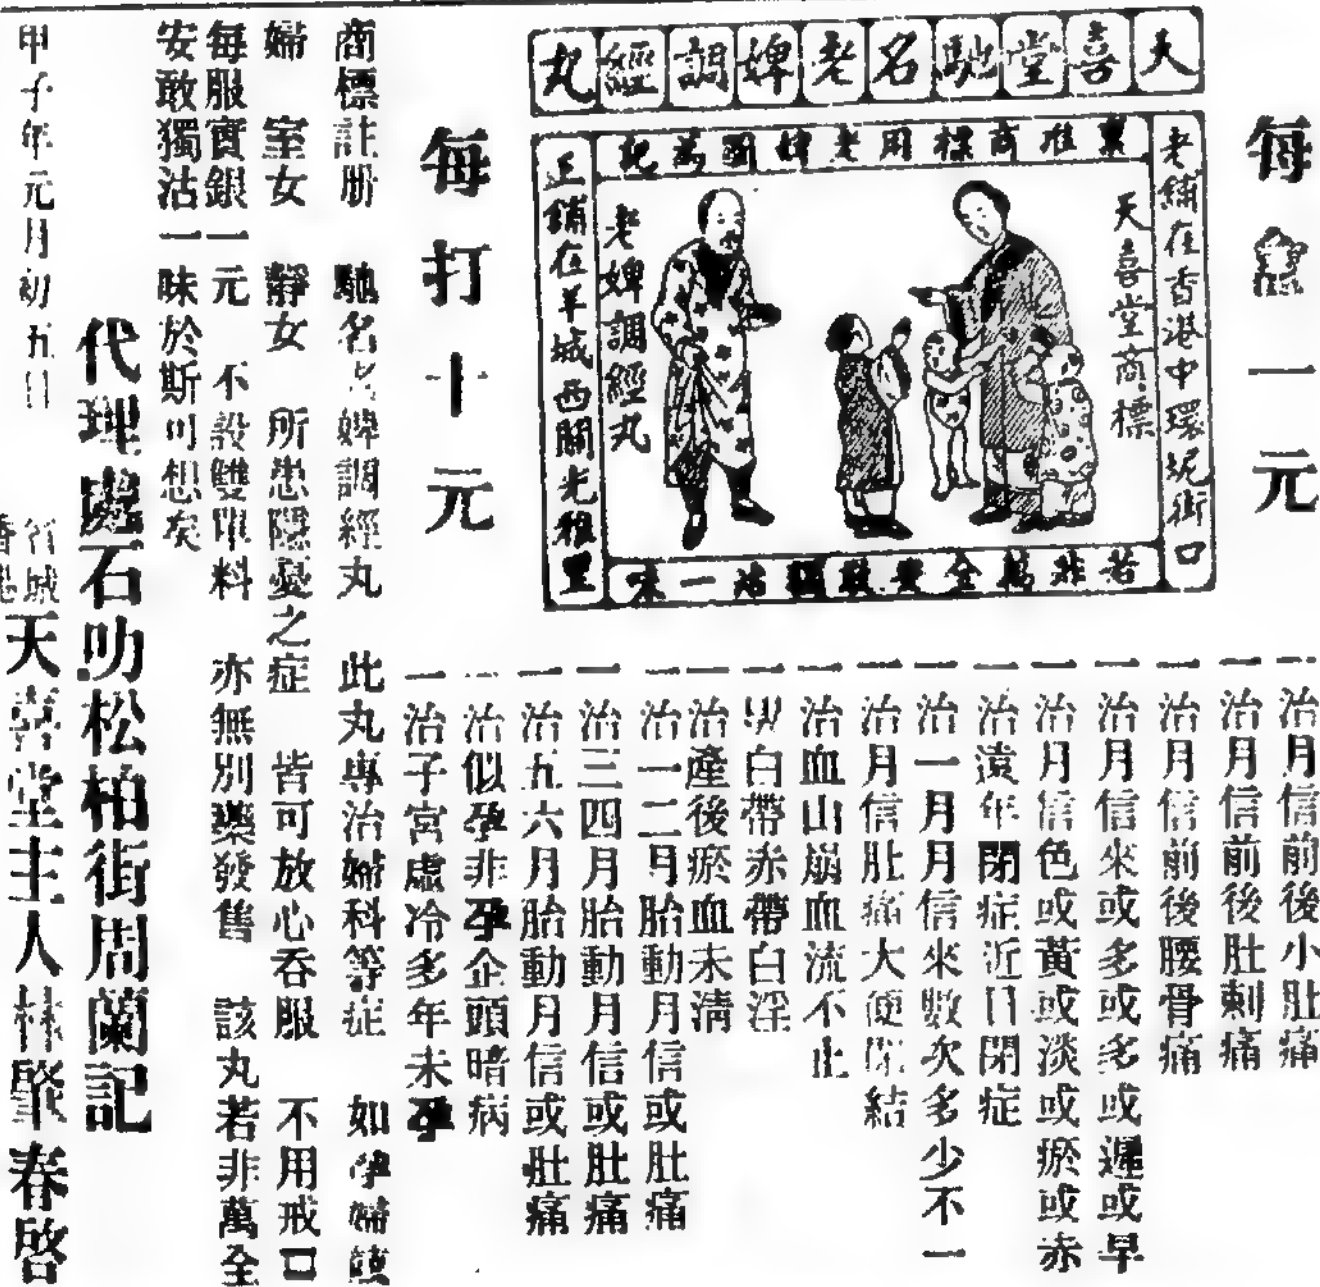 每盒一元
天喜堂馳名老婢調經丸
老鋪在香港中環坭街口
票准商標用老婢圖為記
天喜堂商標
老婢調經丸
正鋪在羊城西關光雅里
若非萬全安敢獨沽一味
每打十元
一治月信前後小肚痛
一治月信前後肚刺痛
一治月信前後腰骨痛
一治月信來或多或多或遲或早
一治月信色或黃或淡或瘀或赤
一治遠年閉症近日閉症
一治一月月信來數次多少不一
一治月信肚痛大便閉結
一治血山崩血流不止
一 白帶赤帶白淫
一治產後瘀血未清
一治一二月胎動月信或肚痛
一治三四月胎動月信或肚痛
一治五六月胎動月信或肚痛
一治似孕非孕企頭暗病
一治子宮虛冷多年未孕
商標註册 馳名老婢調經丸 此丸專治婦科等症 如孕婦
婦 室女 靜女 所患隱憂之症 皆可放心吞服 不用戒口
每服實銀一元 不設雙單料 亦無別藥發售 該丸若非萬全
安敢獨沽一味於斯可想矣
代理處石叻松柏街周蘭記
省城香港天喜堂主人林肇春啓
甲子年元月初五日